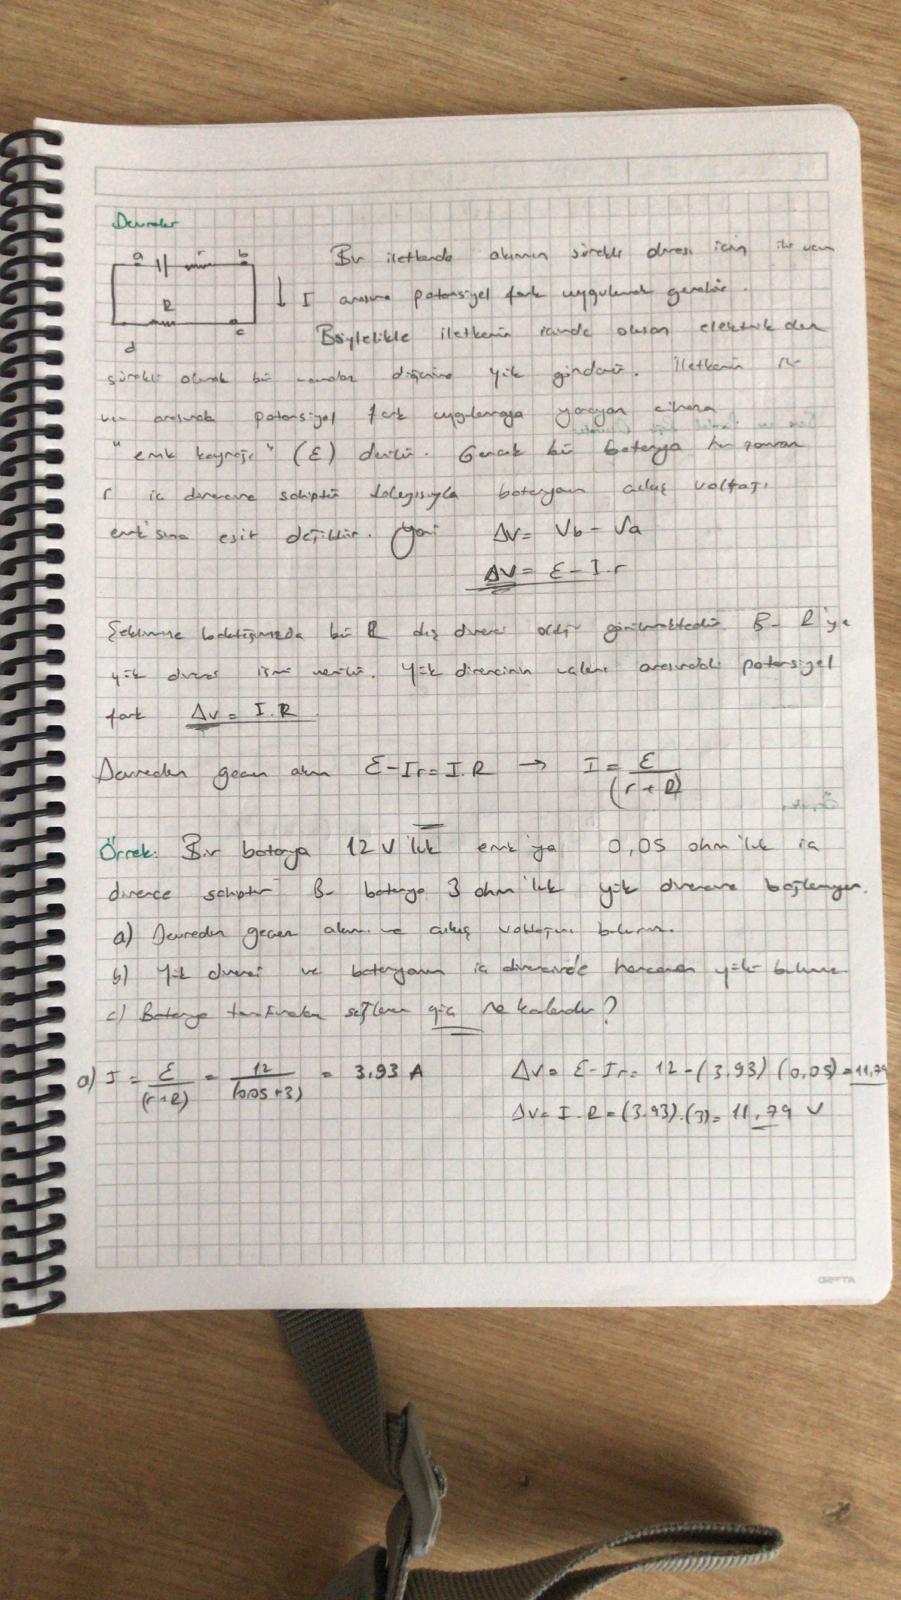 Devreler
a r b
R
d c
I
Bir iletkende akımın sürekli olması için iki ucu
arasına potansiyel fark uygulamak gerekir.
Böylelikle iletkenin içinde oluşan elektrik alan
sürekli olarak bir uçtan diğerine yük gönderir. İletkenin iki
ucu arasında potansiyel fark uygulamaya yarayan cihaza
"emk kaynağı" (ε) denilir. Gerçek bir batarya her zaman
r iç direncine sahiptir dolayısıyla bataryanın çıkış voltajı
emk'sına eşit değildir. Yani ΔV = Vb - Va
ΔV = ε - I.r
Şeklimize baktığımızda bir R dış direnci olduğu görülmektedir. Bu R'ye
yük direnci ismi verilir. Yük direncinin uçları arasındaki potansiyel
fark ΔV = I.R
Devreden geçen akım ε - Ir = I.R → I = ε / (r + R)
Örnek: Bir batarya 12 V'luk emk'ya 0,05 ohm'luk iç
dirence sahiptir. Bu batarya 3 ohm'luk yük direncine bağlanıyor.
a) Devreden geçen akımı ve çıkış voltajını bulunuz.
b) Yük direnci ve bataryanın iç direncinde harcanan bulunuz
c) Batarya tarafından sağlanan güç ne kadardır?
a) I = ε / (r+R) = 12 / (0,05+3) = 3,93 A ΔV = ε - Ir = 12 - (3,93) (0,05) = 11,79
ΔV = I.R = (3,93).(3) = 11,79 V